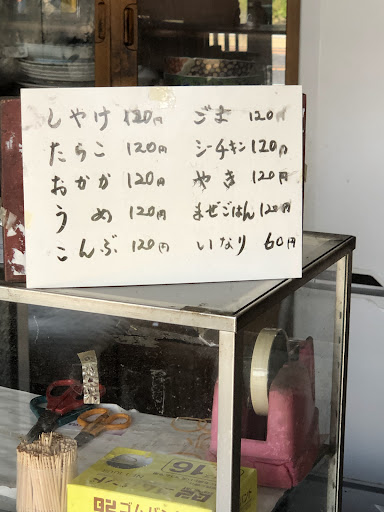 しやけ 120円
たらこ 120円
おかか 120円
うめ 120円
こんぶ 120円
ごま 120円
シーチキン 120円
やき 120円
まぜごはん 120円
いなり 60円
16
ゴムバン